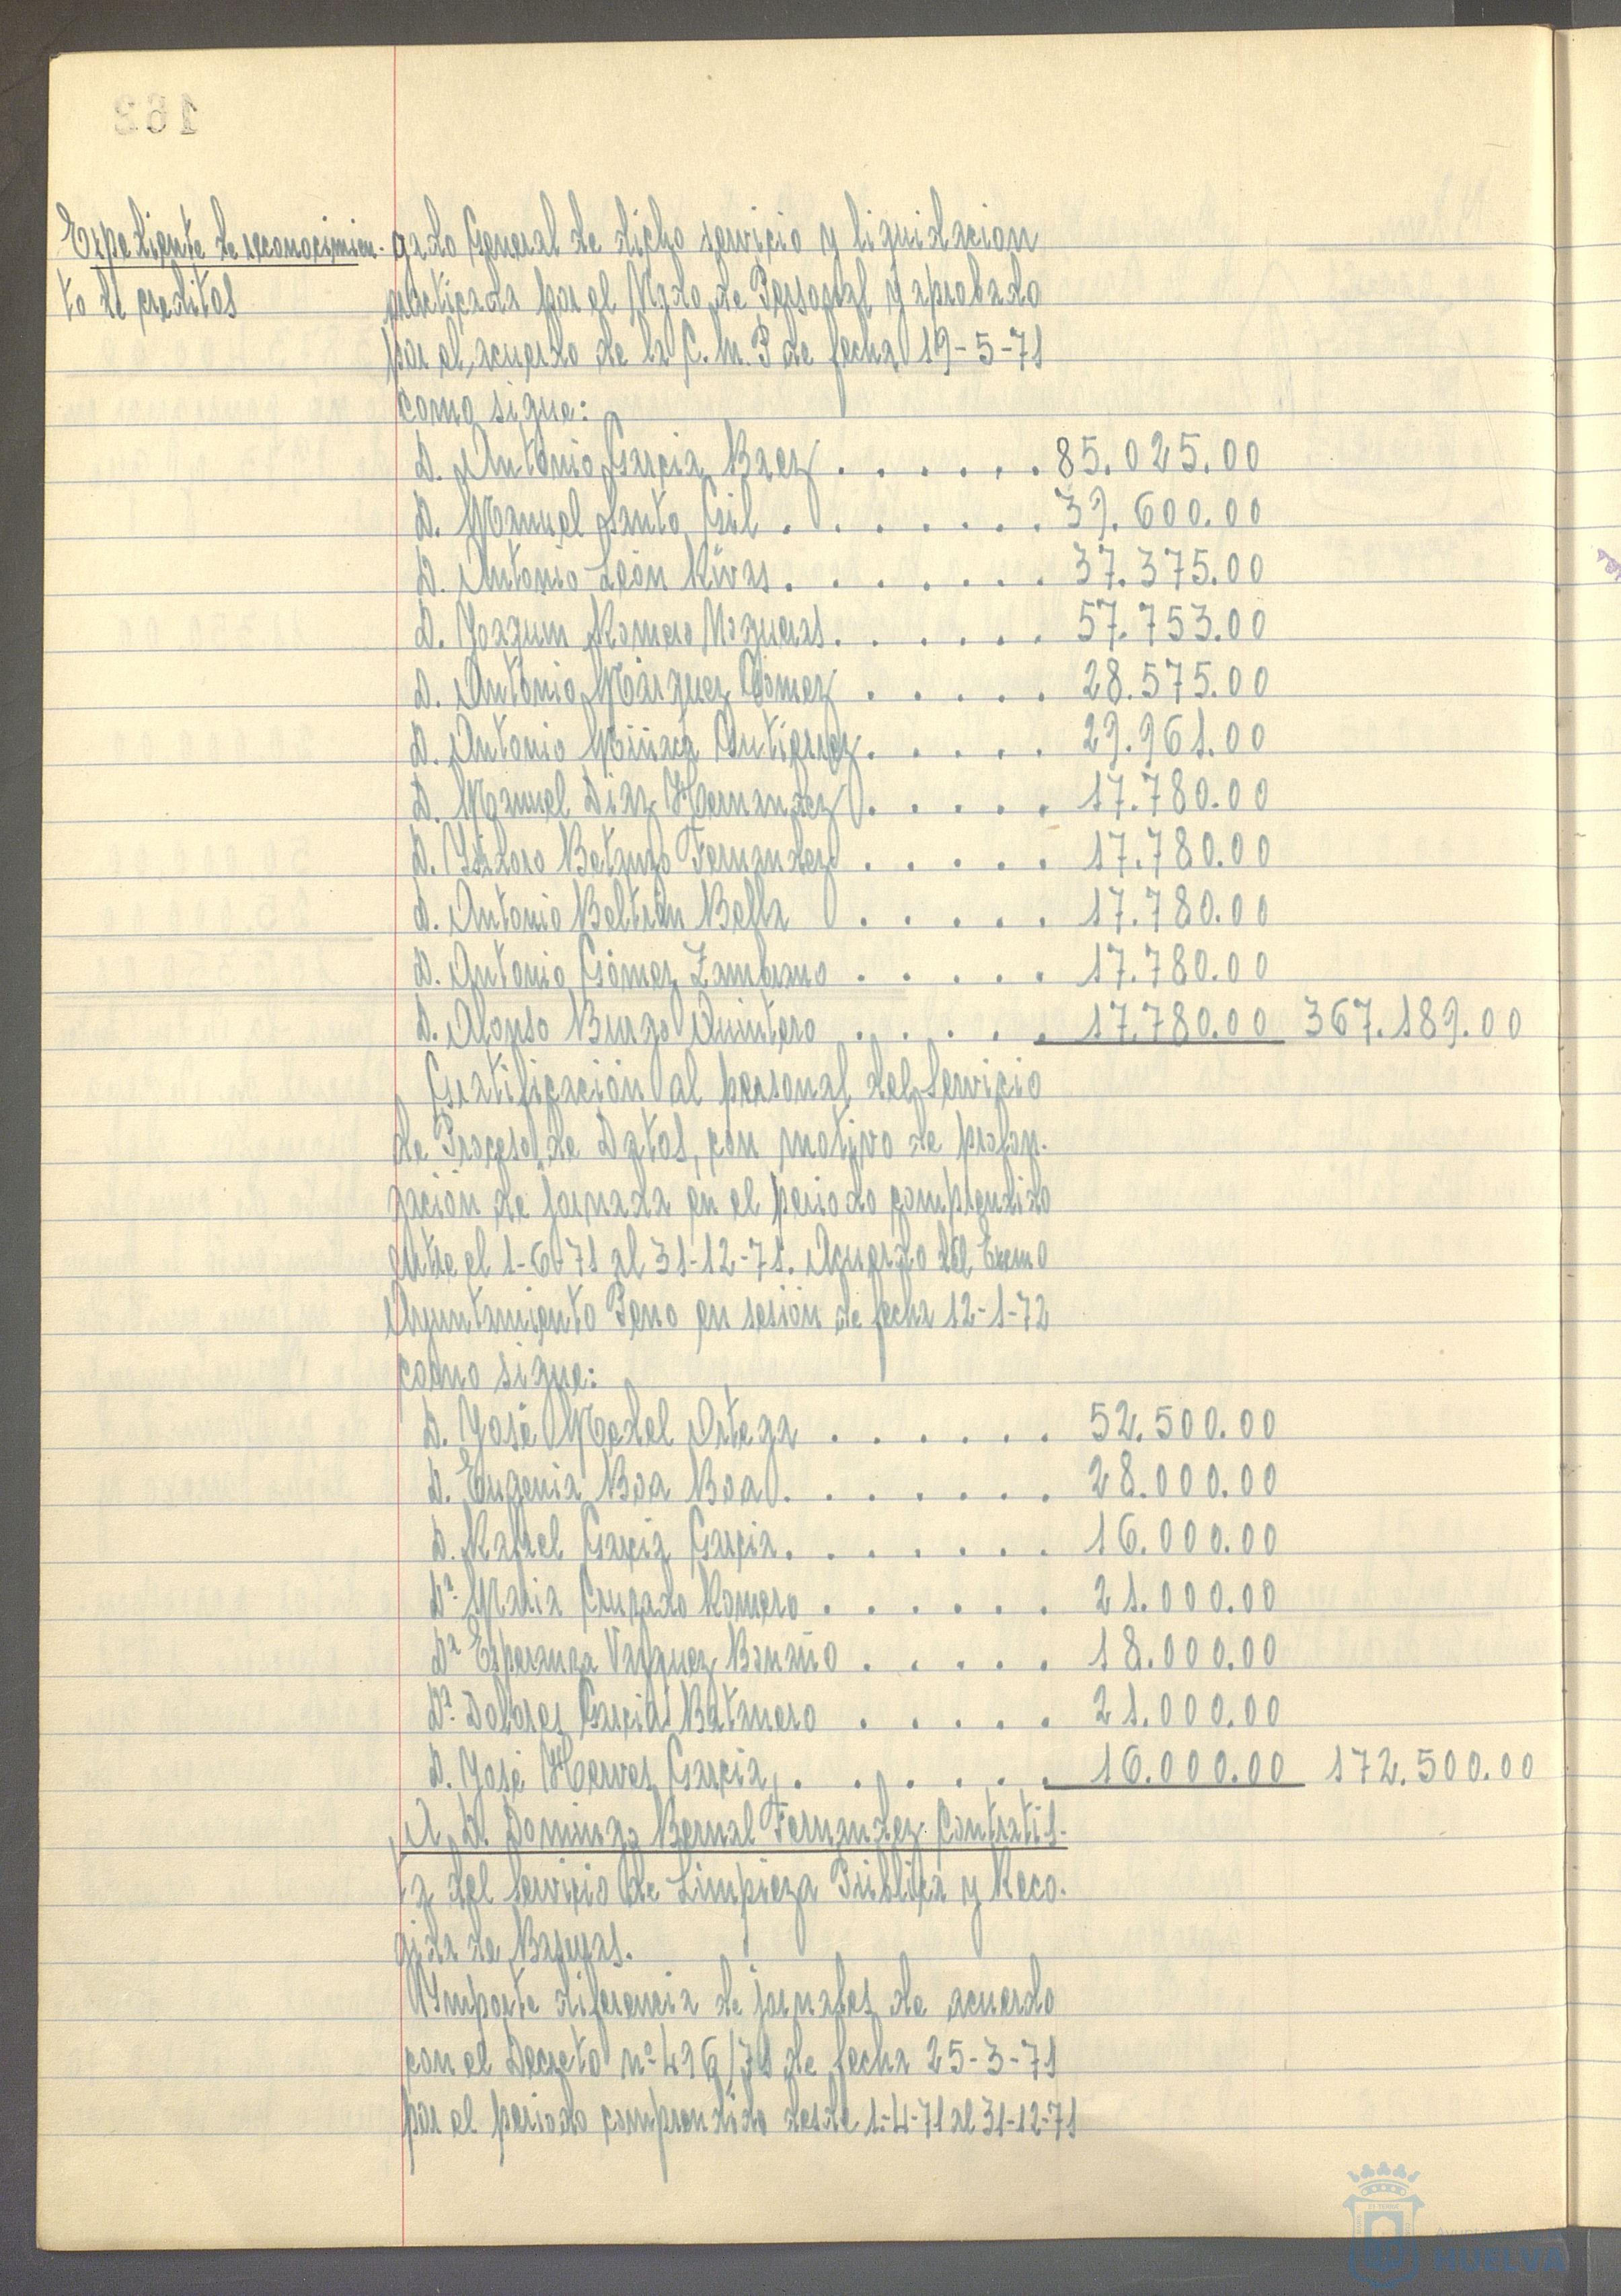 Expediente de reconocimien-
to de creditos
gado General de dicho servicio y liquidacion
practicada por el Ngdo de Personal y aprobado
por el acuerdo de la C. M. P de fecha 19-5-71
como sigue:
D. Antonio Garcia Baez . . . . . . 85.025.00
D. Manuel Santo Gil . . . . . . . 39.600.00
D. Antonio León Rivas . . . . . . . 37.375.00
D. Joaquin Romero Nogueras . . . . . . 57.753.00
D. Antonio Márquez Gómez . . . . . 28.575.00
D. Antonio Gutierrez . . . . . 29.961.00
D. Manuel Diaz Hernandez . . . . . 17.780.00
D. Ysidoro Betanzo Fernandez . . . . . 17.780.00
D. Antonio Beltrán Bella . . . . . 17.780.00
D. Antonio Gómez Zambrano . . . . . 17.780.00
D. Alonso Burgo Quintero . . . . . 17.780.00 367.189.00
Gratificación al personal del Servicio
de Proceso de Datos, con motivo de prolon-
gación de jornada en el periodo comprendido
entre el 1-6-71 al 31-12-71. Acuerdo del Excmo
Ayuntamiento Peno en sesión de fecha 12-1-72
como sigue:
D. José Medel Ortega . . . . . . 52.500.00
D. Eugenia Boa Boa . . . . . . . 28.000.00
D. Rafael Garcia Garcia . . . . . . . 16.000.00
Dª Maria Cruzado Romero . . . . . . 21.000.00
Dª Esperanza Vazquez Bonaño . . . . . 18.000.00
Dª Dolores Garcia Batanero . . . . . 21.000.00
D. José Herves Garcia . . . . . . . 16.000.00 172.500.00
A D. Domingo Bernal Fernandez Contratis-
ta del Servicio de Limpieza Pública y Reco-
gida de Basuras.
Ymporte diferencia de jornales de acuerdo
con el Decreto nº 496/71 de fecha 25-3-71
por el periodo comprendido desde 1-4-71 al 31-12-71
HUELVA